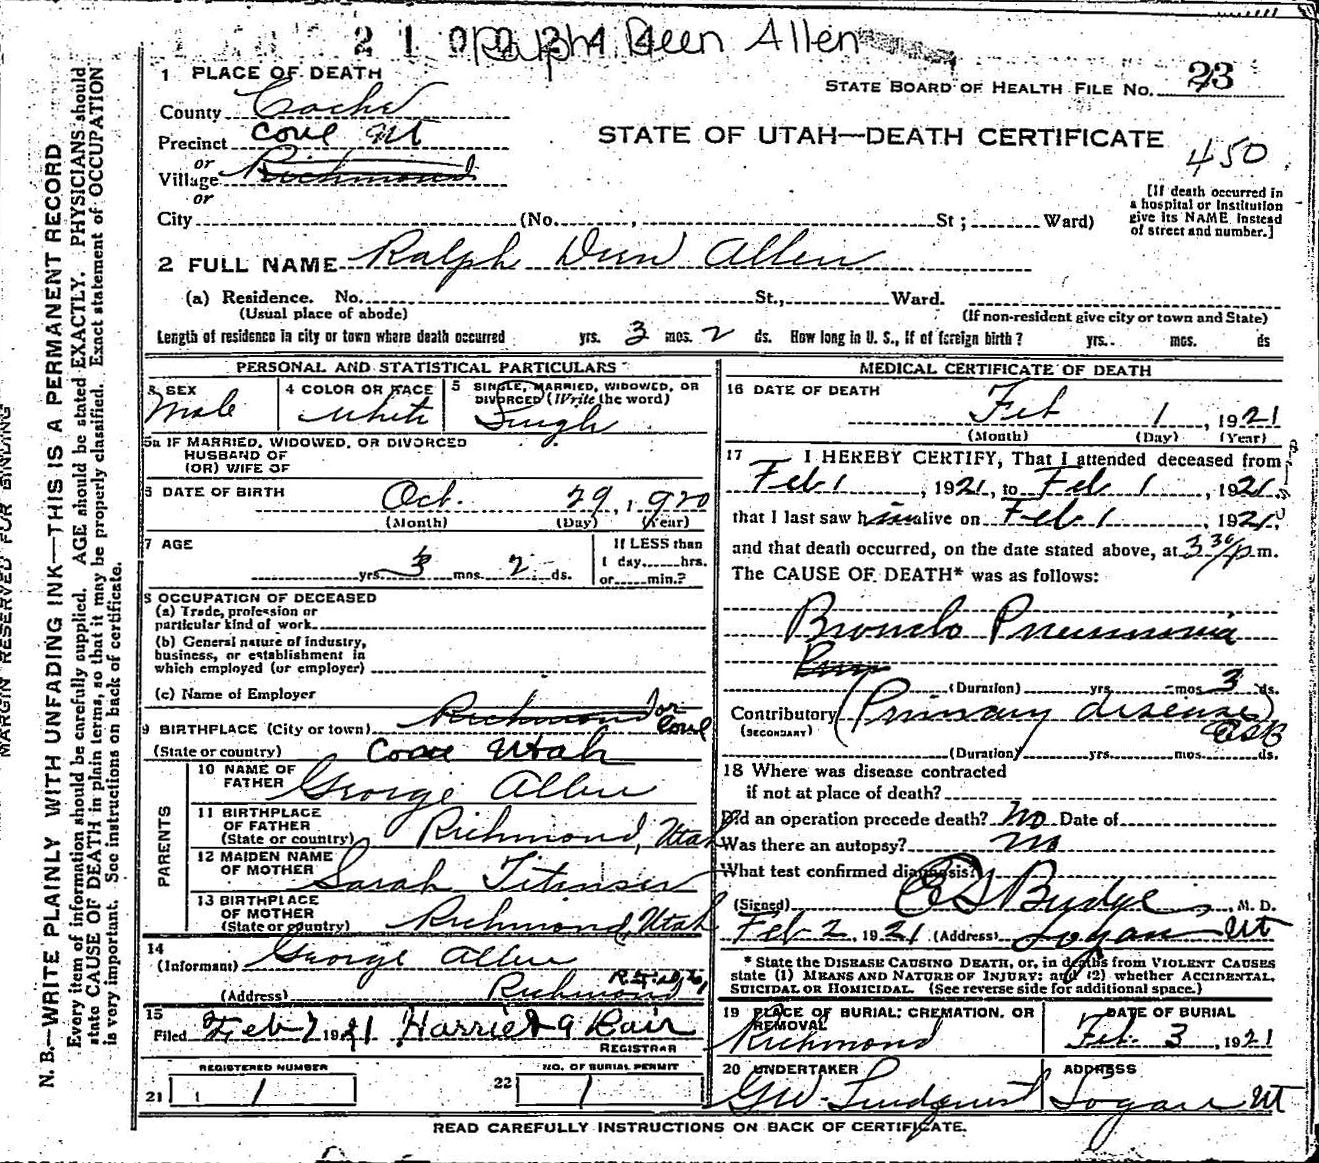 2 1 0 0 2 4 4 Ralph Deen Allen
1 PLACE OF DEATH
STATE BOARD OF HEALTH FILE No. 23
County Cache
Precinct Cove Ut
or
Village Richmond
or
STATE OF UTAH—DEATH CERTIFICATE
450
[If death occurred in a hospital or institution give its NAME instead of street and number.]
City (No. , St ; Ward)
2 FULL NAME Ralph Allen
(a) Residence. No. St., Ward.
(Usual place of abode) (If non-resident give city or town and State)
Length of residence in city or town where death occurred yrs. 3 mos. 2 ds. How long in U. S., if of foreign birth? yrs. mos. ds
PERSONAL AND STATISTICAL PARTICULARS
3 SEX Male
4 COLOR OR RACE White
5 SINGLE, MARRIED, WIDOWED, OR DIVORCED (Write the word) Single
5a IF MARRIED, WIDOWED, OR DIVORCED
HUSBAND OF
(OR) WIFE OF
6 DATE OF BIRTH Oct. 29, 1920
(Month) (Day) (Year)
7 AGE yrs 3 mos 2 ds.
If LESS than
1 day, hrs.
or min.?
8 OCCUPATION OF DECEASED
(a) Trade, profession or
particular kind of work
(b) General nature of industry,
business, or establishment in
which employed (or employer)
(c) Name of Employer
9 BIRTHPLACE (City or town) Richmond or Cove
(State or country) Cove Utah
PARENTS
10 NAME OF FATHER George Allen
11 BIRTHPLACE OF FATHER
(State or country) Richmond, Utah
12 MAIDEN NAME OF MOTHER Sarah
13 BIRTHPLACE OF MOTHER
(State or country) Richmond, Utah
14
(Informant) George Allen
(Address) Richmond
15
Filed Feb 7 1921 Harriet A Bair
REGISTRAR
REGISTERED NUMBER
21 1
NO. OF BURIAL PERMIT
22 1
MEDICAL CERTIFICATE OF DEATH
16 DATE OF DEATH Feb 1, 1921
(Month) (Day) (Year)
17 I HEREBY CERTIFY, That I attended deceased from
Feb 1, 1921, to Feb 1, 1921,
that I last saw him alive on Feb 1, 1921,
and that death occurred, on the date stated above, at 3 30 p.m.
The CAUSE OF DEATH* was as follows:
Broncho Pneumonia
(Duration) yrs mos 3 ds.
Contributory (Primary disease) ESB
(SECONDARY)
(Duration) yrs. mos. ds.
18 Where was disease contracted
if not at place of death?
Did an operation precede death? No Date of
Was there an autopsy? No
What test confirmed diagnosis?
(Signed) E S Budge, M. D.
Feb 2, 1921 (Address) Logan Ut
* State the DISEASE CAUSING DEATH, or, in deaths from VIOLENT CAUSES
state (1) MEANS AND NATURE OF INJURY: and (2) whether ACCIDENTAL,
SUICIDAL OR HOMICIDAL. (See reverse side for additional space.)
19 PLACE OF BURIAL, CREMATION, OR REMOVAL Richmond
DATE OF BURIAL Feb. 3, 1921
20 UNDERTAKER GW. Lindquist
ADDRESS Logan Ut
READ CAREFULLY INSTRUCTIONS ON BACK OF CERTIFICATE.
MARGIN RESERVED FOR BINDING
N. B.—WRITE PLAINLY WITH UNFADING INK—THIS IS A PERMANENT RECORD
Every item of information should be carefully supplied. AGE should be stated EXACTLY. PHYSICIANS should
state CAUSE OF DEATH in plain terms, so that it may be properly classified. Exact statement of OCCUPATION
is very important. See instructions on back of certificate.